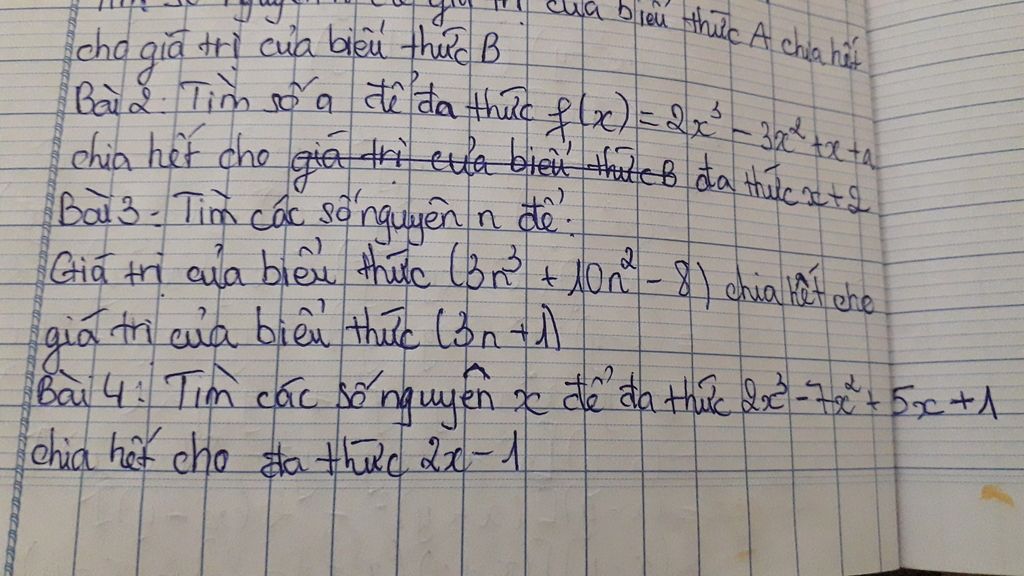 của biểu thức A chia hết
cho giá trị của biểu thức B
Bài 2: Tìm số a để đa thức f(x) = 2x³ - 3x² + x + a
chia hết cho giá trị của biểu thức B đa thức x + 2
Bài 3: Tìm các số nguyên n để:
Giá trị của biểu thức (3n³ + 10n² - 8) chia hết cho
giá trị của biểu thức (3n + 1)
Bài 4: Tìm các số nguyên x để đa thức 2x³ - 7x² + 5x + 1
chia hết cho đa thức 2x - 1